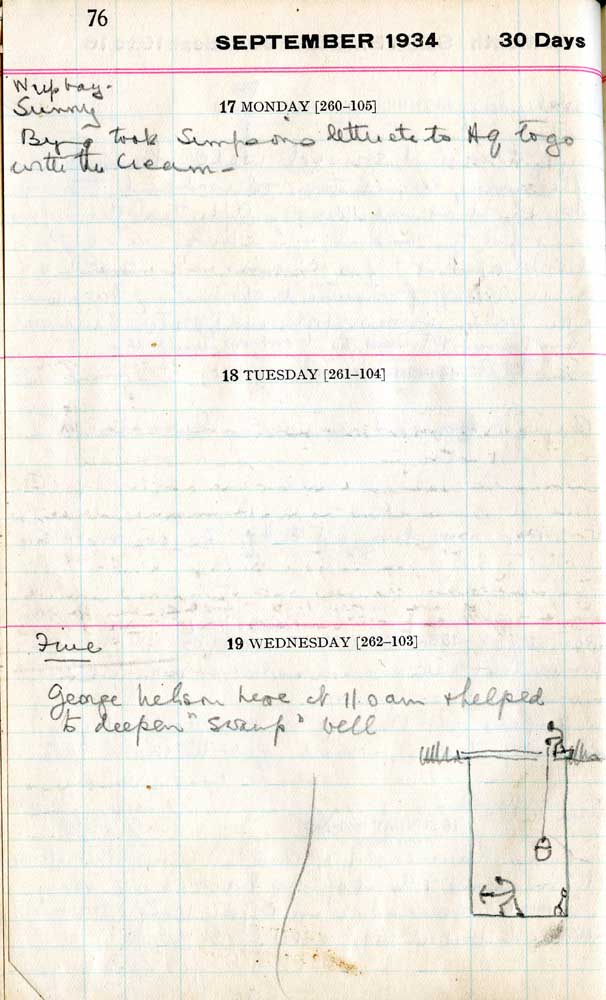 76
SEPTEMBER 1934 30 Days
Sunny
17 MONDAY [260–105]
took Simpsons lettuce to Hq to go
with the Cream -
18 TUESDAY [261–104]
Fine
19 WEDNESDAY [262–103]
George Nelson here at 11.0 am & helped
to deepen "Swamp" well